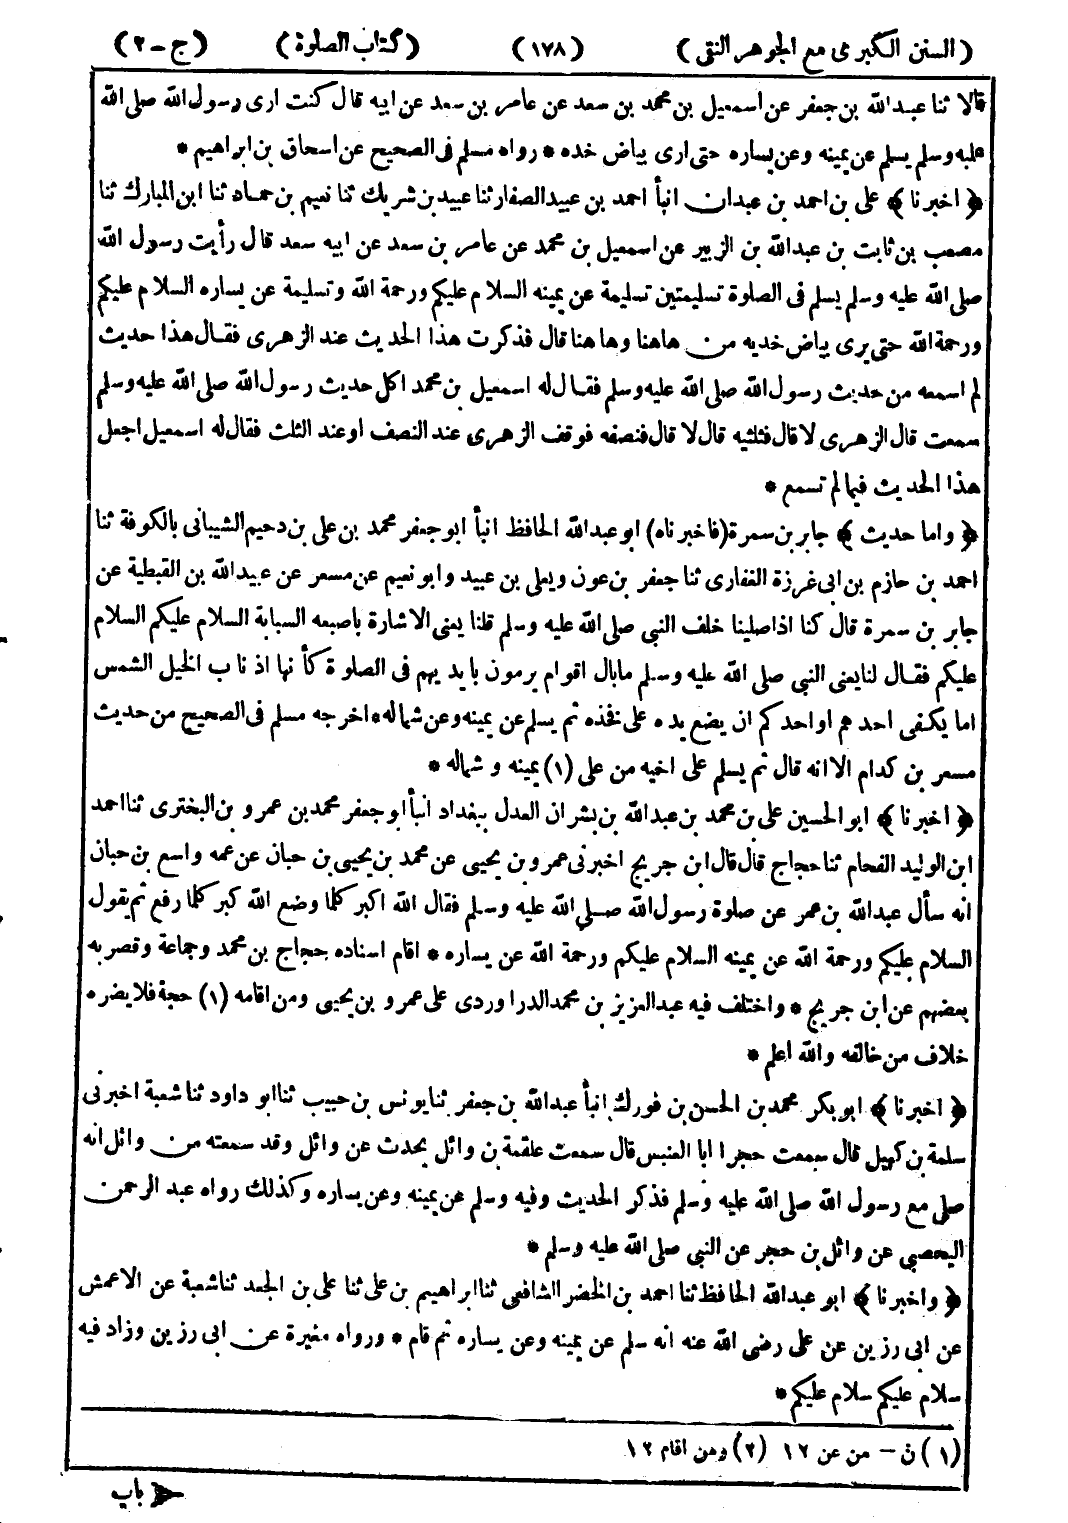 (السنن الكبرى مع الجوهر النقى) (١٧٨) (كتاب الصلوة) (ج-٢)
قالا ثنا عبد الله بن جعفر عن اسمعيل بن محمد بن سعد عن عامر بن سعد عن ابيه قال كنت ارى رسول الله صلى الله
عليه وسلم يسلم عن يمينه وعن يساره حتى ارى بياض خده * رواه مسلم فى الصحيح عن اسحاق بن ابراهيم *
﴿ اخبرنا ﴾ على بن احمد بن عبدان انبأ احمد بن عبيد الصفار ثنا عبيد بن شريك ثنا نعيم بن حماد ثنا ابن المبارك ثنا
مصعب بن ثابت بن عبدالله بن الزبير عن اسمعيل بن محمد عن عامر بن سعد عن ابيه سعد قال رأيت رسول الله
صلى الله عليه وسلم يسلم فى الصلوة تسليمتين تسليمة عن يمينه السلام عليكم ورحمة الله وتسليمة عن يساره السلام عليكم
ورحمة الله حتى يرى بياض خديه من هاهنا وهاهنا قال فذكرت هذا الحديث عند الزهرى فقال هذا حديث
لم اسمعه من حديث رسول الله صلى الله عليه وسلم فقال له اسمعيل بن محمد اكل حديث رسول الله صلى الله عليه وسلم
سمعت قال الزهرى لا قال فثلثيه قال لا قال فنصفه فوقف الزهرى عند النصف او عند الثلث فقال له اسمعيل اجعل
هذا الحديث فيما لم تسمع *
﴿ واما حديث ﴾ جابر بن سمرة (فاخبرناه) ابو عبدالله الحافظ انبأ ابو جعفر محمد بن على بن دحيم الشيبانى بالكوفة ثنا
احمد بن حازم بن ابى غرزة الغفارى ثنا جعفر بن عون ويعلى بن عبيد وابو نعيم عن مسعر عن عبيدالله بن القبطية عن
جابر بن سمرة قال كنا اذا صلينا خلف النبى صلى الله عليه وسلم قلنا يعنى الاشارة باصبعه السبابة السلام عليكم السلام
عليكم فقال لنا يعنى النبى صلى الله عليه وسلم ما بال اقوام يرمون بايديهم فى الصلوة كأنها اذناب الخيل الشمس
اما يكفى احدهم او احدكم ان يضع يده على فخذه ثم يسلم عن يمينه وعن شماله * اخرجه مسلم فى الصحيح من حديث
مسعر بن كدام الا انه قال ثم يسلم على اخيه من على (١) يمينه وشماله *
﴿ اخبرنا ﴾ ابو الحسين على بن محمد بن عبدالله بن بشران العدل ببغداد انبأ ابو جعفر محمد بن عمرو بن البخترى ثنا احمد
ابن الوليد الفحام ثنا حجاج قال قال ابن جريج اخبرنى عمرو بن يحيى عن محمد بن يحيى بن حبان عن عمه واسع بن حبان
انه سأل عبدالله بن عمر عن صلوة رسول الله صلى الله عليه وسلم فقال الله اكبر كلما وضع الله كبر كلما رفع ثم يقول
السلام عليكم ورحمة الله عن يمينه السلام عليكم ورحمة الله عن يساره * اقام اسناده حجاج بن محمد وجماعة وقصر به
بعضهم عن ابن جريج * واختلف فيه عبد العزيز بن محمد الدراوردى على عمرو بن يحيى ومن اقامه (١) حجة فلا يضره
خلاف من خالفه والله اعلم *
﴿ اخبرنا ﴾ ابو بكر محمد بن الحسن بن فورك انبأ عبدالله بن جعفر ثنا يونس بن حبيب ثنا ابو داود ثنا شعبة اخبرنى
سلمة بن كهيل قال سمعت حجرا ابا العنبس قال سمعت علقمة بن وائل يحدث عن وائل وقد سمعته من وائل انه
صلى مع رسول الله صلى الله عليه وسلم فذكر الحديث وفيه وسلم عن يمينه وعن يساره وكذلك رواه عبد الرحمن
اليحصبى عن وائل بن حجر عن النبى صلى الله عليه وسلم *
﴿ واخبرنا ﴾ ابو عبدالله الحافظ ثنا احمد بن الخضر الشافعى ثنا ابراهيم بن على ثنا على بن الجعد ثنا شعبة عن الاعمش
عن ابى رزين عن على رضى الله عنه انه سلم عن يمينه وعن يساره ثم قام * ورواه مغيرة عن ابى رزين وزاد فيه
سلام عليكم سلام عليكم *
(١) ث - من عن ١٢ (٢) ومن اقام ١٢
باب